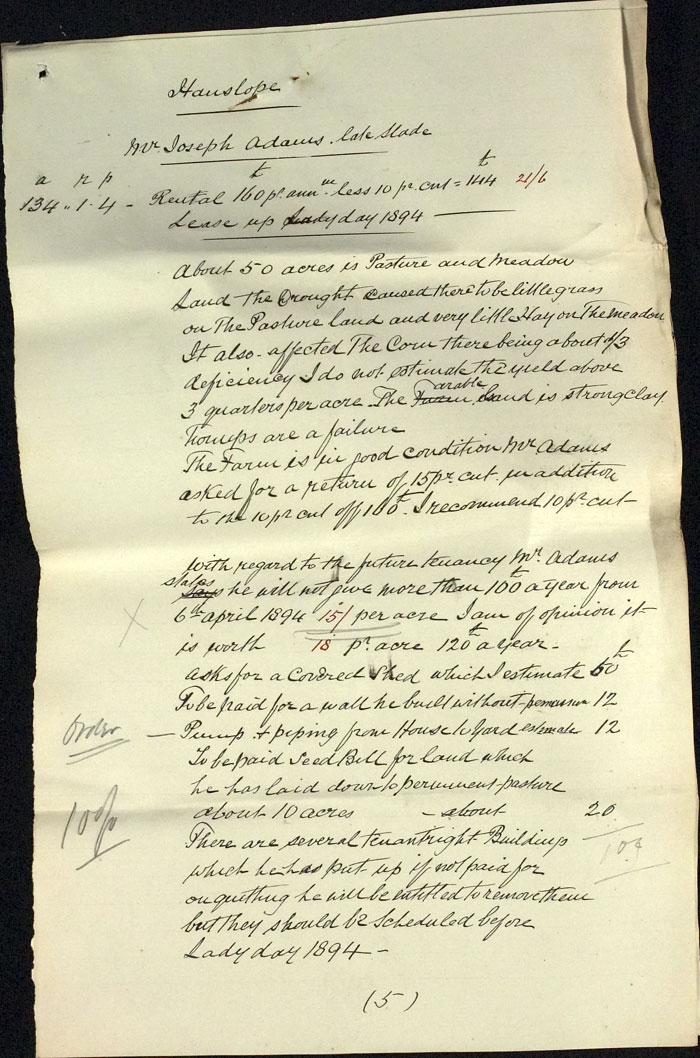 Hanslope
Mr Joseph Adams. late Slade
a r p
134 " 1 - 4 - Rental 160£ pr. annm less 10 pr. cut = 144£ 21/6
Lease up Ladyday 1894
About 50 acres is Pasture and Meadow
Land the Drought caused there to be little grass
on The Pasture land and very little Hay on The Meadow
It also affected The Corn there being about 1/3
deficiency I do not estimate the yield above
3 quarters per acre. The Farm arable Land is strong clay.
Turnips are a failure
The Farm is in good condition Mr Adams
asked for a return of 15 pr. cut. in addition
to the 10 pr cut off 160£. I recommend 10 pr. cut -
With regard to the future tenancy Mr. Adams
states
says he will not give more than 100£ a year from
6th April 1894 15/ per acre I am of opinion it
is worth 18 pr. acre 120£ a year -
asks for a covered Shed which I estimate 60£
To be paid for a wall he built without permission 12
Order - Pump & piping from House to Yard estimate 12
To be paid Seed Bill for land which
he has laid down to permanent pasture
about 10 acres - about 20
104
10%
There are several tenantright Buildings
which he has put up if not paid for
on quitting he will be entitled to remove them
but they should be Scheduled before
Ladyday 1894 -
(5)